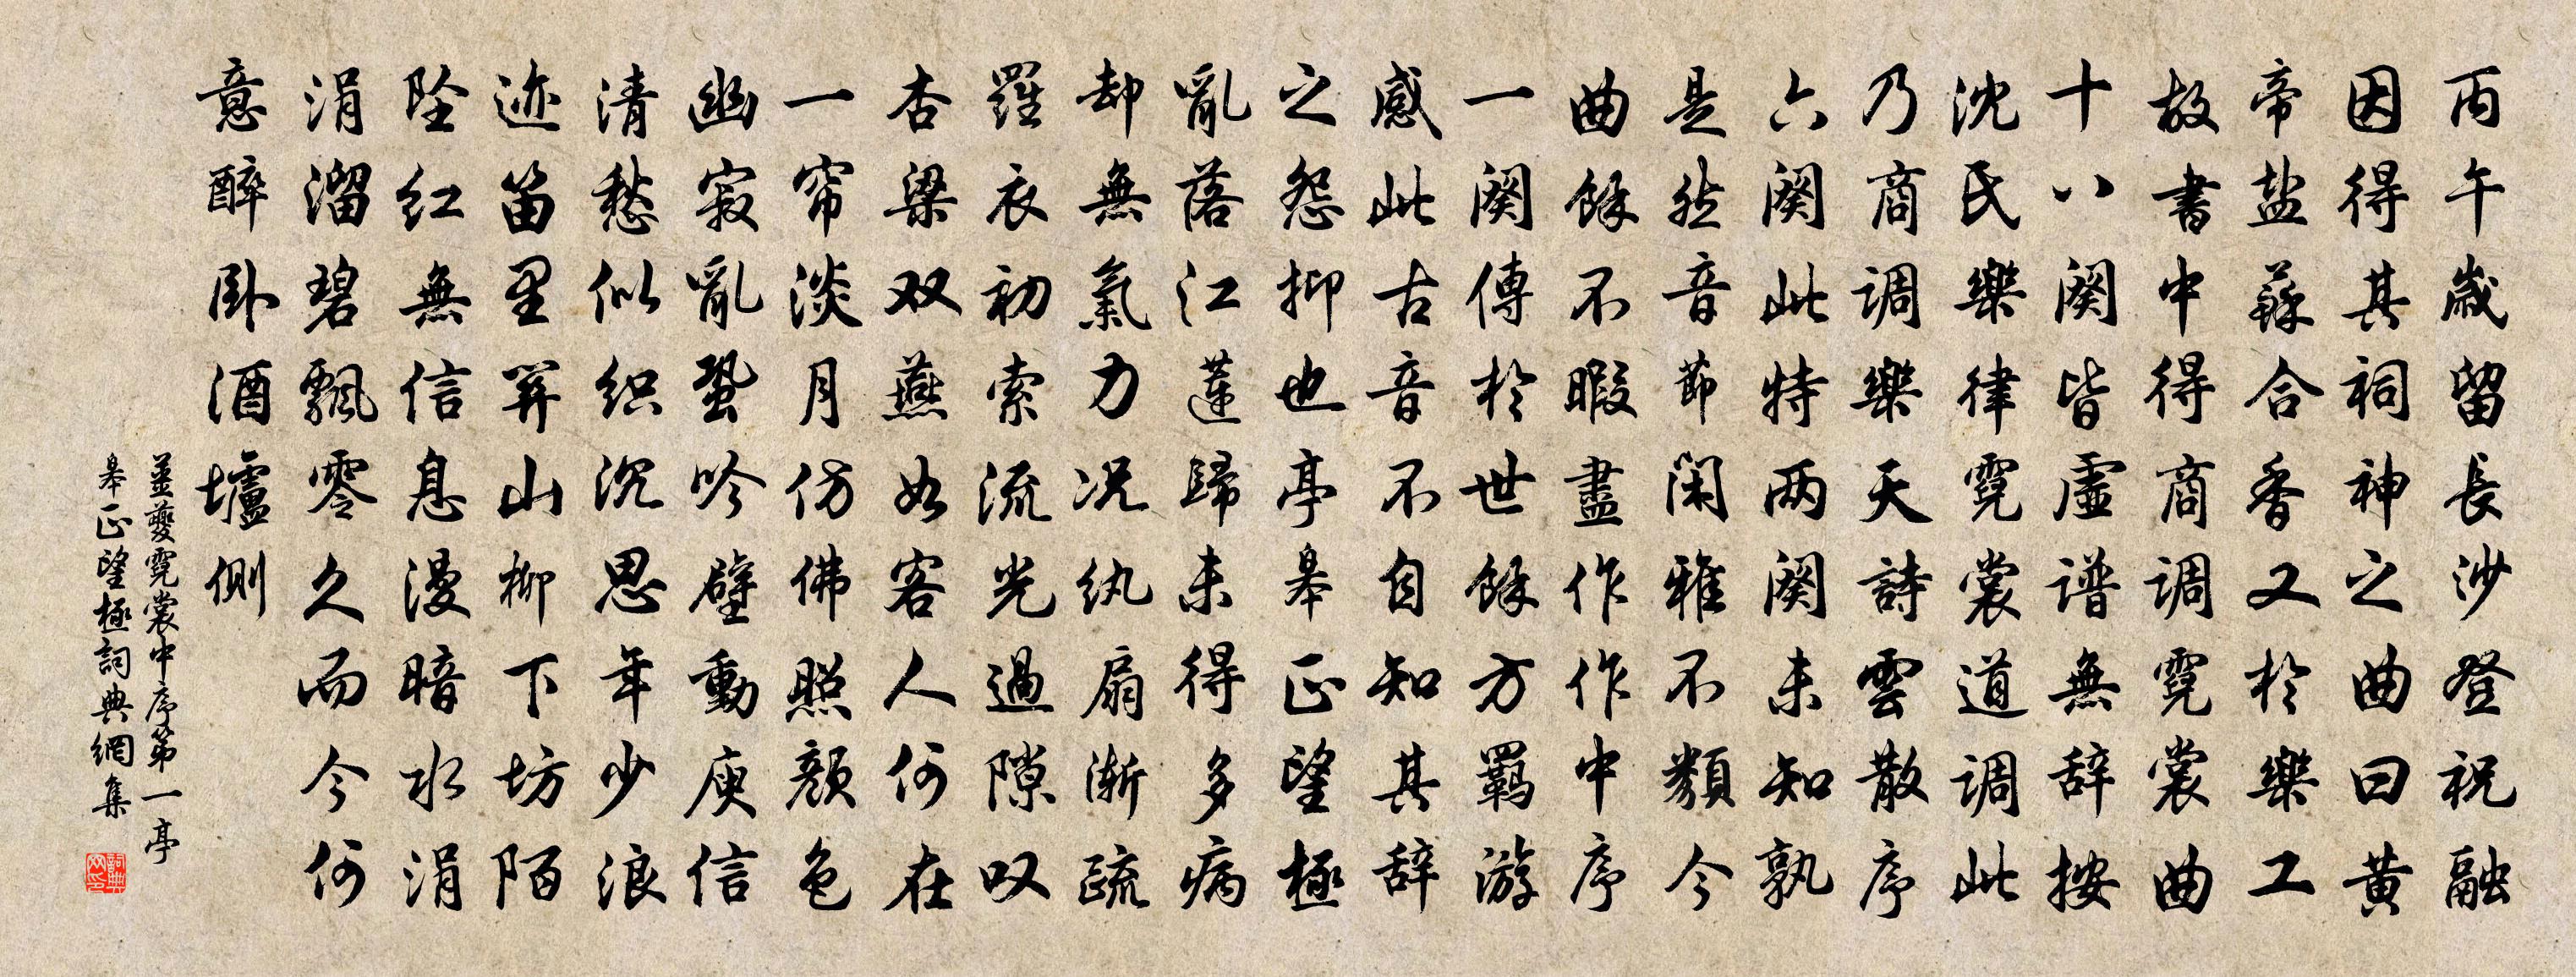 丙午歲留長沙登祝融
因得其祠神之曲曰黄
帝盐蘇合香又於樂工
故書中得商調霓裳曲
十八闋皆虛谱無辞按
沈氏樂律霓裳道調此
乃商調樂天詩雲散序
六闋此特两闋未知孰
是然音節閑雅不類今
曲餘不暇盡作作中序
一闋傳於世餘方羈游
感此古音不自知其辞
之怨抑也亭皋正望極
亂落江蓮歸未得多病
却無氣力况纨扇渐疏
羅衣初索流光過隙叹
杏梁双燕如客人何在
一帘淡月仿佛照颜色
幽寂亂蛩吟壁動庾信
清愁似织沉思年少浪
迹笛里关山柳下坊陌
坠红無信息漫暗水涓
涓溜碧飘零久而今何
意醉卧酒壚侧
姜夔霓裳中序第一亭
皋正望極詞典網集
詞典網印